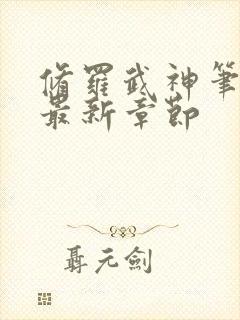 脩羅武神筆
最新章節
聶元劍